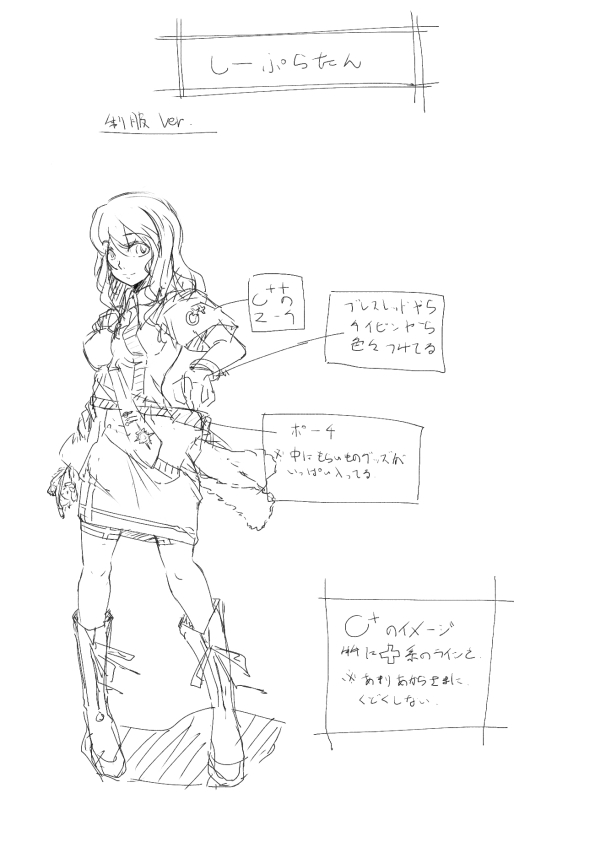 しーぷらたん
制服 Ver.
C++の
マーク
ブレスレットやら
タイピンやら
色々つけてる
ポーチ
※中にもらいものグッズが
いっぱい入ってる。
C+のイメージ
特に十系のラインと
※あまりあからさまに
くどくしない。